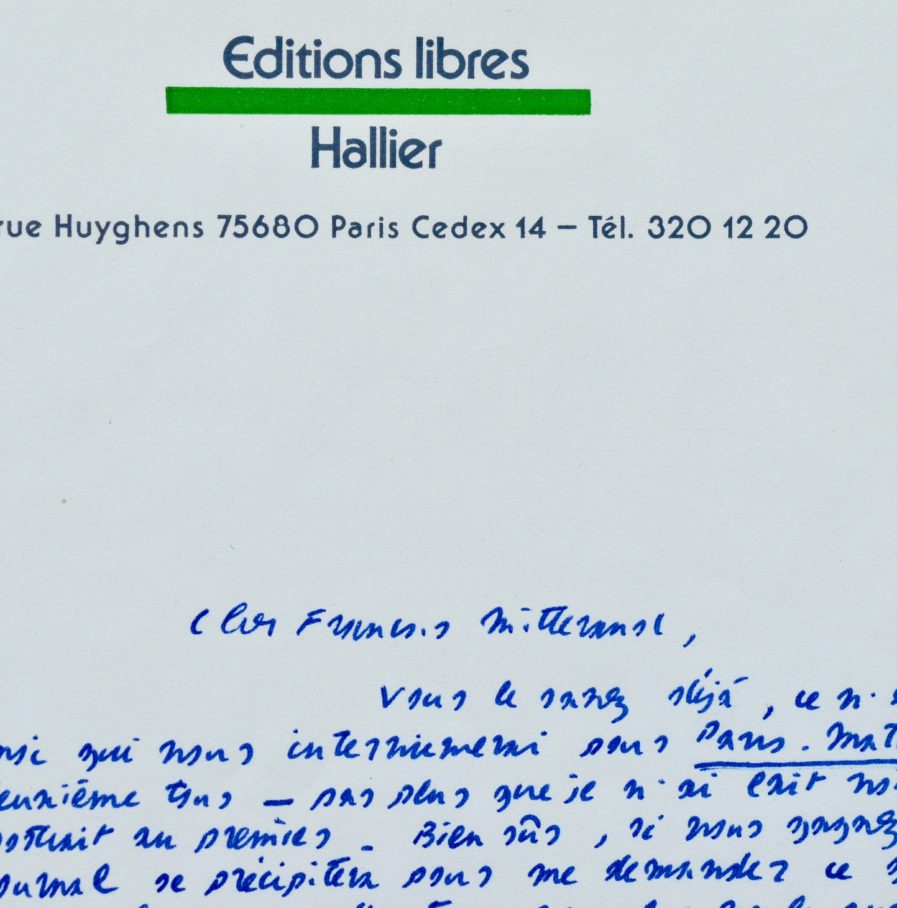 Editions libres
Hallier
rue Huyghens 75680 Paris Cedex 14 – Tél. 320 12 20
Cher François Mitterand,
Vous le savez déjà, ce n'
qui vous interviewerai pour Paris. Mat
euxième tour – pas plus que je n'ai écrit vo
ortrait au premier. Bien sûr, si vous gagnez
ournal se précipitera pour me demander ce